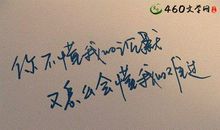 460文学网
你不懂我的沉默
又怎么会懂我的难过